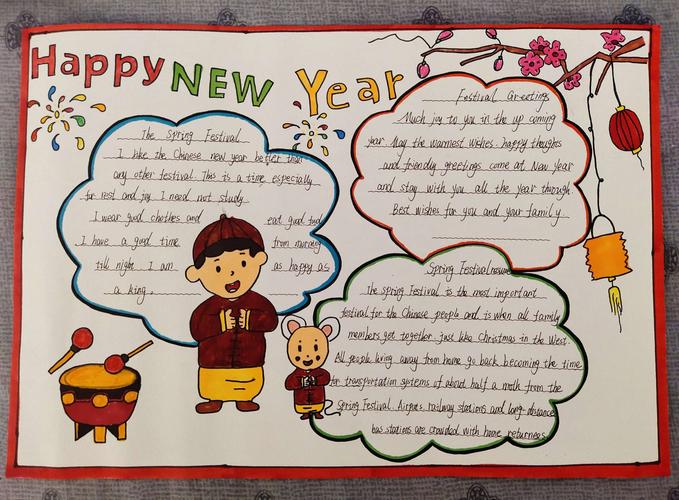 Happy NEW Year
The Spring Festival
I like the Chinese new year better than
any other festival. This is a time, especially
for rest and joy. I need not study
I wear good chothes and eat good food
I have a good time from morning
till night. I am as happy as
a king.
Festival Greetings
Much joy to you in the up coming
year May the warmest wishes. happy thoughts
and friendly greetings come at New Year
and stay with you all the year through
Best wishes for you and your family
Spring Festival
The spring Festival is the most important
festival for the Chinese people and is when all family
members get together just like Christmas in the West
All people living away from home go back, becoming the time
for transportation systems of about half a moth from the
Spring Festival. Airports, railway stations and long-distance
bus stations are crowded with home returnees